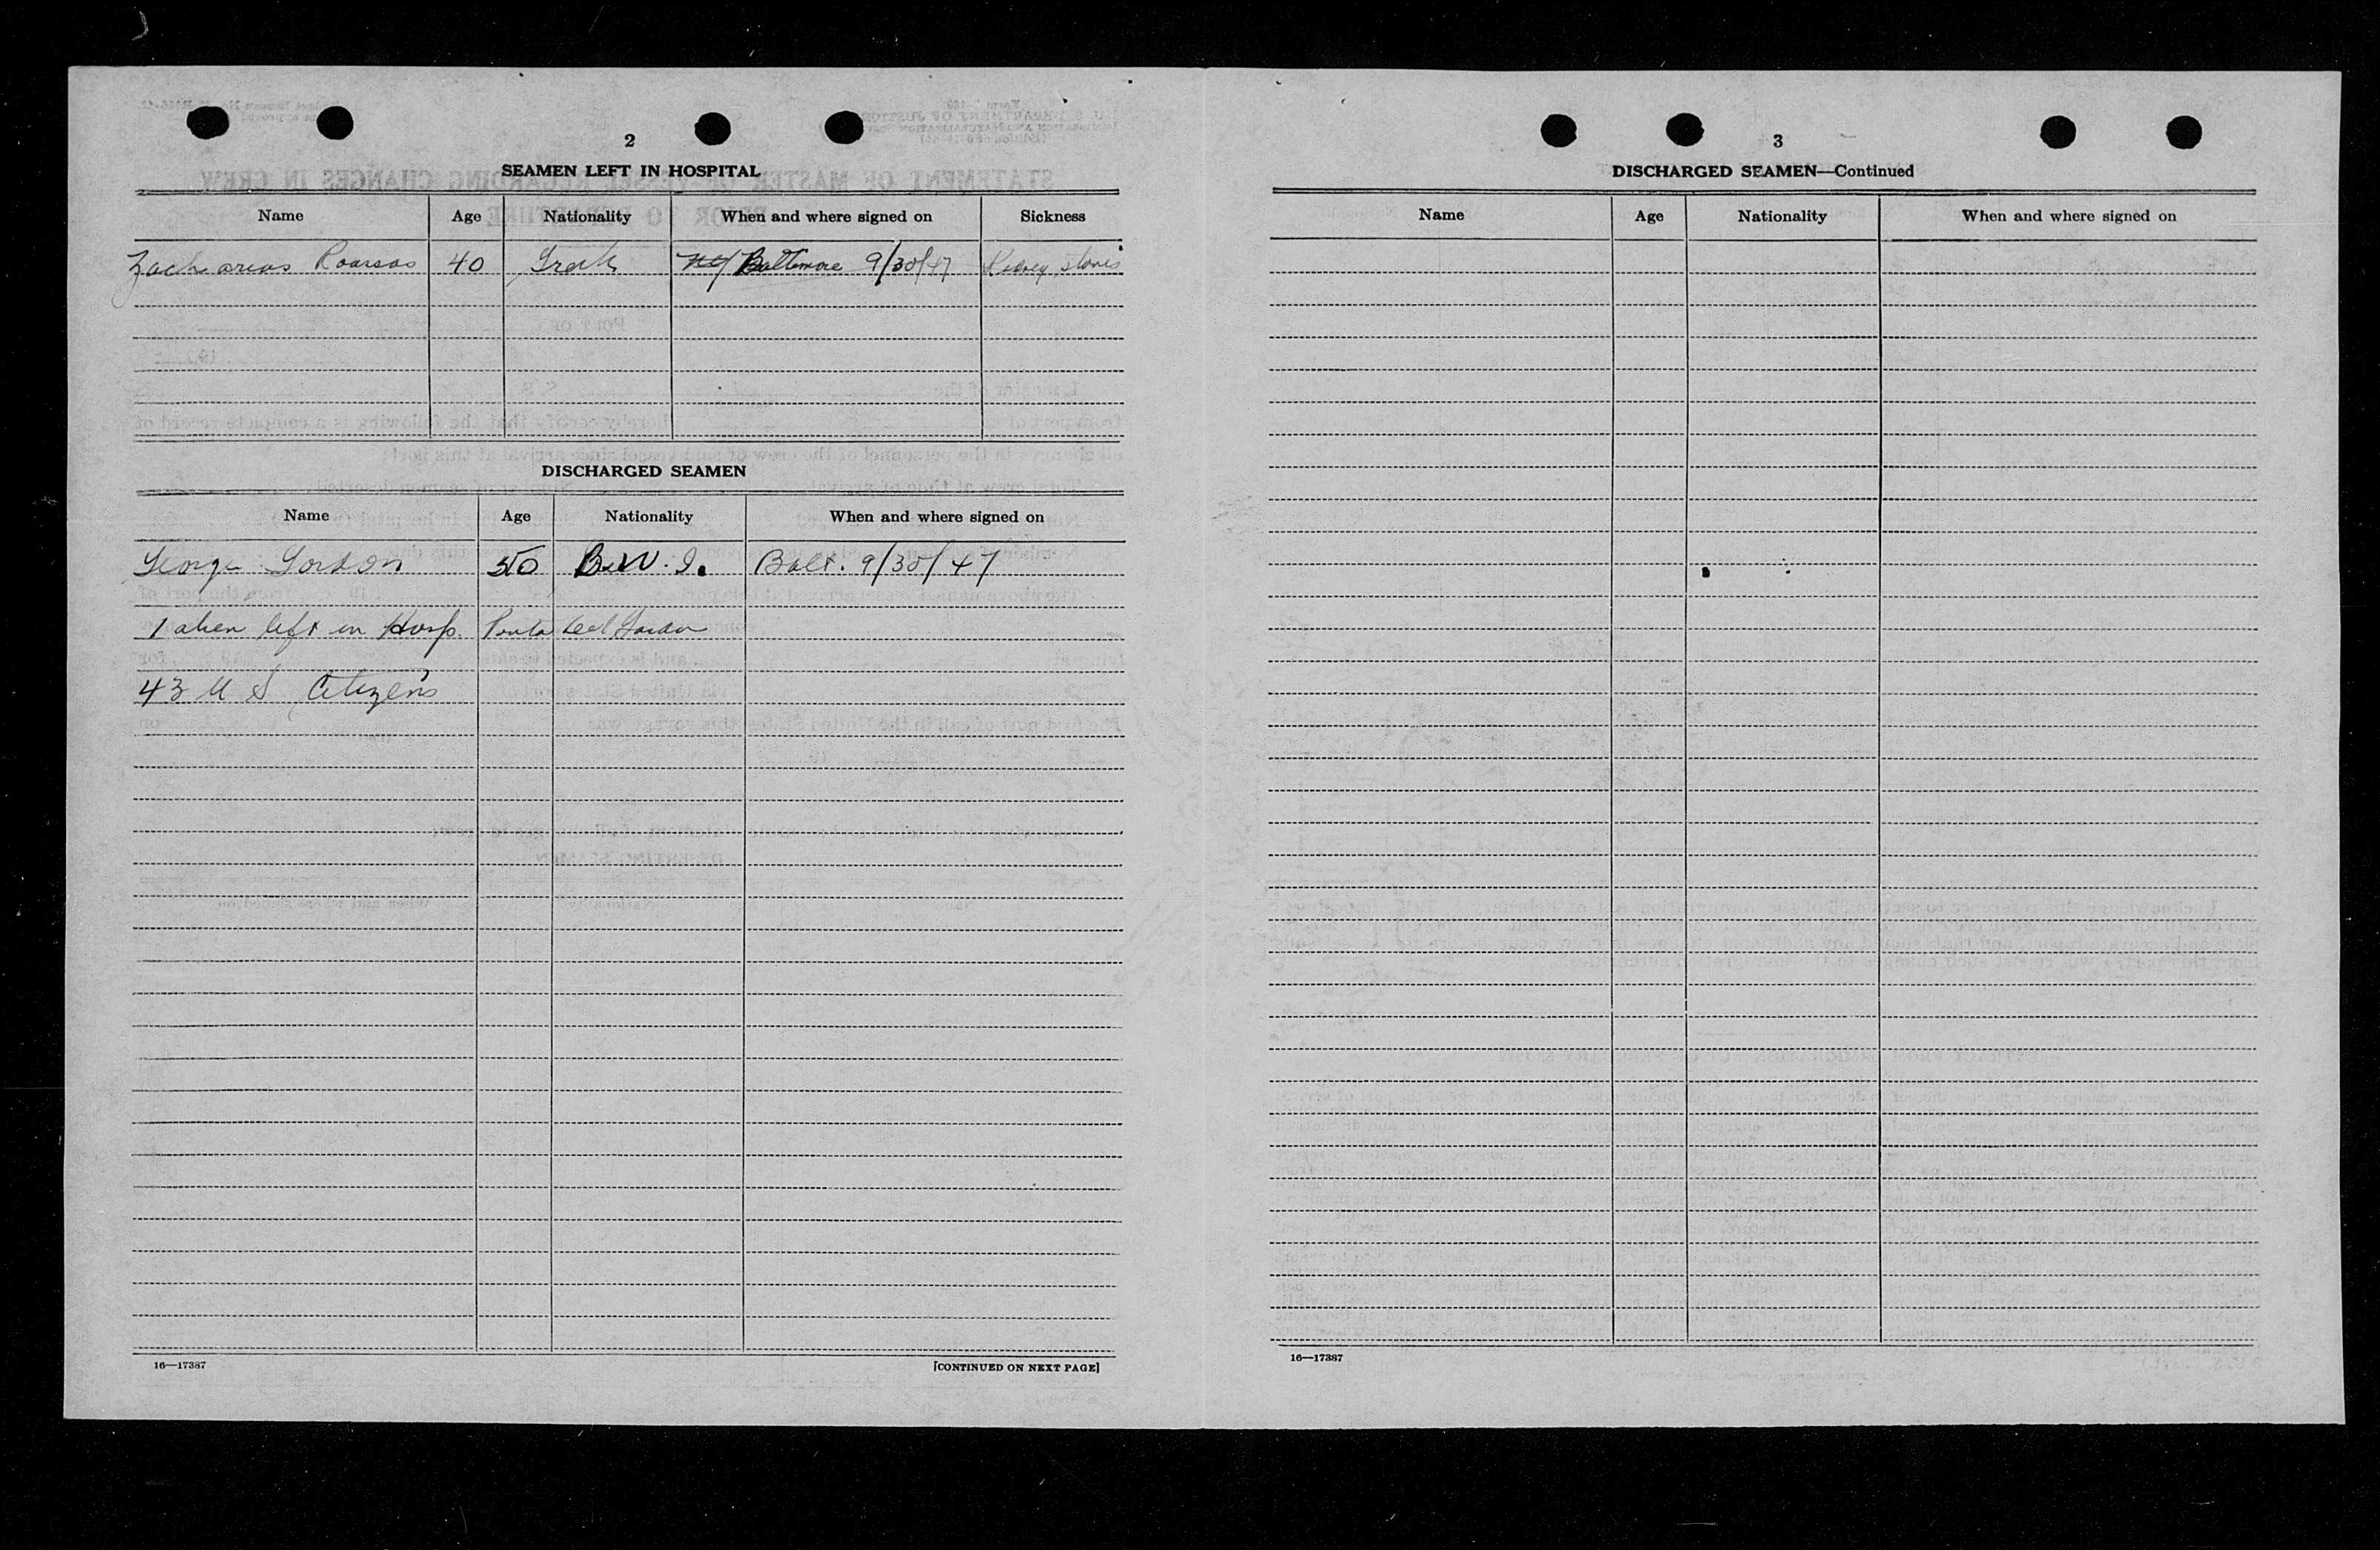 2
SEAMEN LEFT IN HOSPITAL
Name Age Nationality When and where signed on Sickness
Zacharias 40 Greek NY Baltimore 9/30/47 Kidney stones
DISCHARGED SEAMEN
Name Age Nationality When and where signed on
George Gordon 50 B.W.I. Balt. 9/30/47
1 alien left in Hosp.
43 U S Citizens
16—17387
[CONTINUED ON NEXT PAGE]
3
DISCHARGED SEAMEN—Continued
Name Age Nationality When and where signed on
16—17387